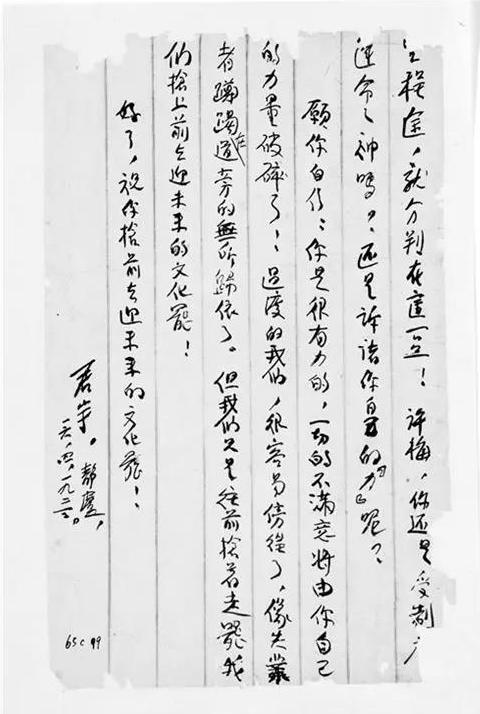 程途，就分判在這一点！評梅，你还是受制于
運命之神嗎？还是訴諸你自己的『力』呢？
願你自信：你是很有力的，一切的不滿意将由你自己
的力量破碎了！過渡的我們，很容易傍徨了，像失業
者躑躅在道旁的無所歸依了。但我們只是往前搶着走罷我
們搶上前去迎未来的文化罷！
好了，祝你搶前去迎未来的文化罷！
君宇。静廬，
一六，四，一九二三。
65c99